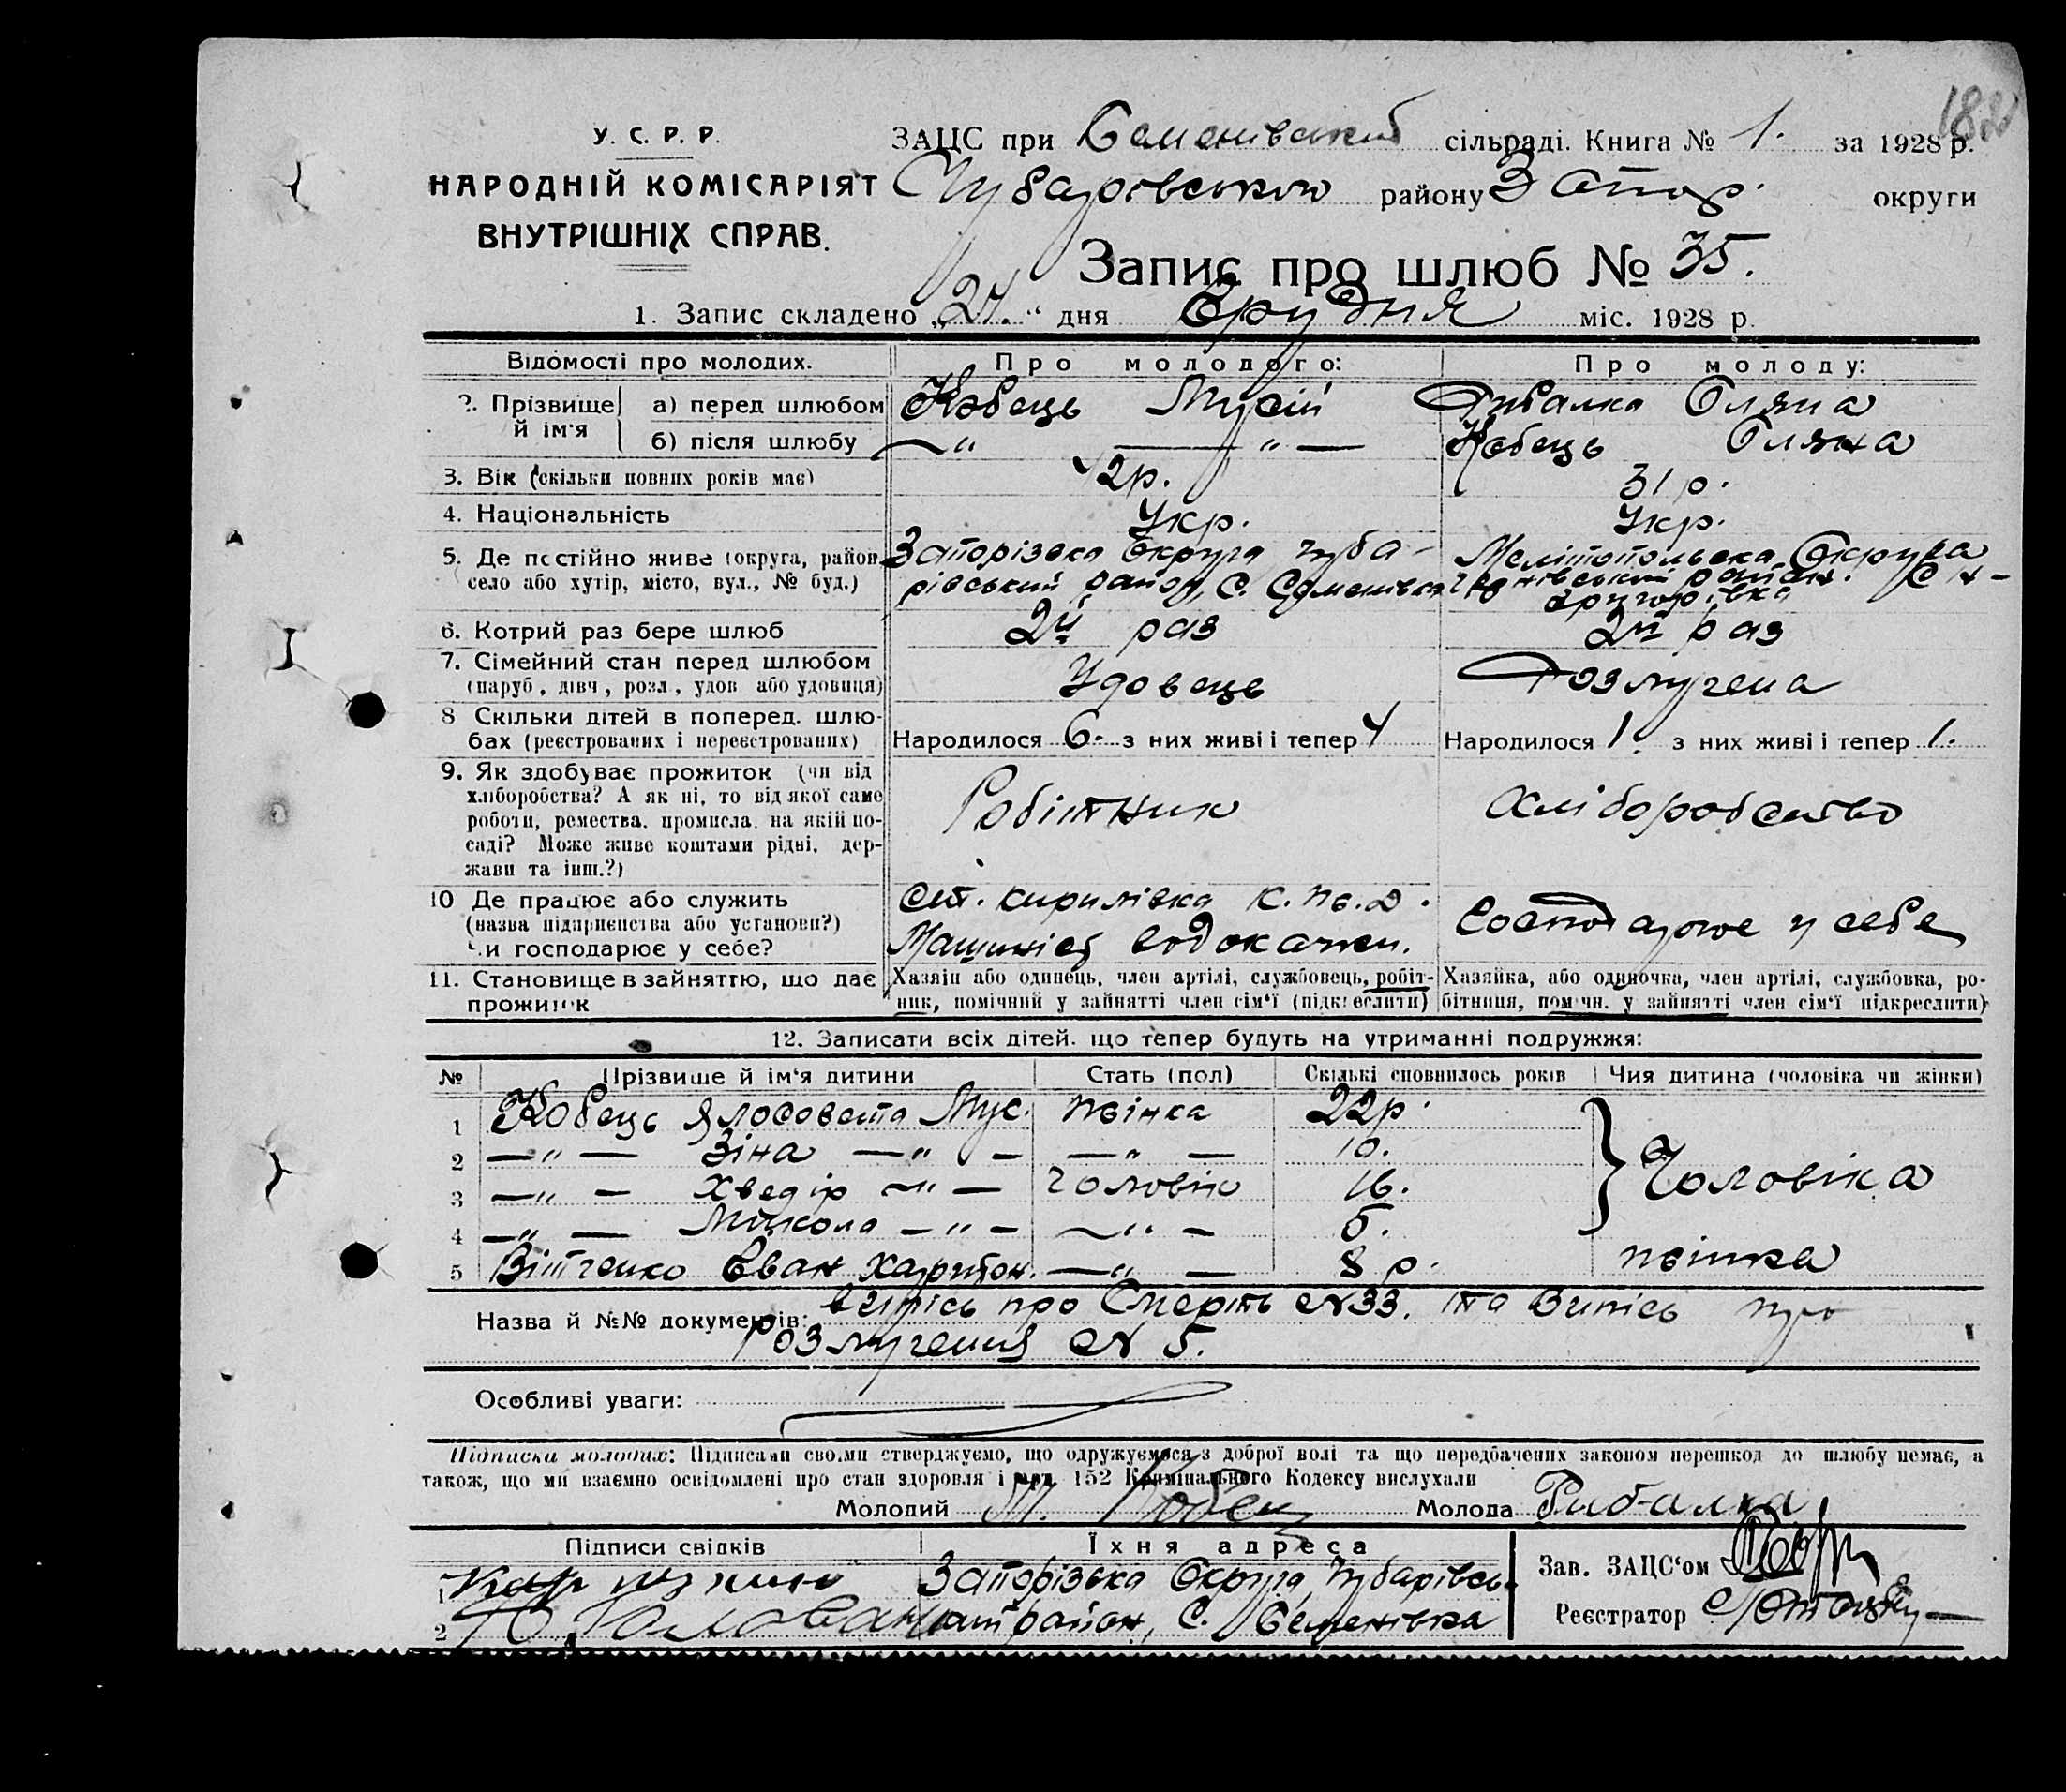 182
У. С. Р. Р.
НАРОДНІЙ КОМІСАРІЯТ
ВНУТРІШНІХ СПРАВ.
ЗАЦС при Семенівській сільраді. Книга № 1. за 1928 р.
Чубарівського району Запор. округи
Запис про шлюб № 35.
1. Запис складено „ “ дня Грудня міс. 1928 р.
Відомості про молодих. Про молодого: Про молоду:
2. Прізвище й ім'я а) перед шлюбом Кобець Мусій Рибалка Оляна
б) після шлюбу —„ — „ — Кобець Оляна
3. Вік (скільки повних років має) 42р. 31 р.
4. Національність Укр. Укр.
5. Де постійно живе (округа, район, Запорізька Округа Чуба- Мелітопольська Округа
село або хутір, місто, вул., № буд.) рівський район, С. Семенівка район.
6. Котрий раз бере шлюб 2й раз 2й раз
7. Сімейний стан перед шлюбом Удовець Розлучена
(паруб., дівч., розл., удов. або удовиця)
8 Скільки дітей в поперед. шлю-
бах (реєстрованих і нереєстрованих) Народилося 6. з них живі і тепер 4 Народилося 1. з них живі і тепер 1.
9. Як здобуває прожиток (чи від
хліборобства? А як ні, то від якої саме
роботи, ремества, промисла, на якій по-
саді? Може живе коштами рідні, дер-
жави та інш.?) Робітник Хліборобство
10 Де працює або служить Ст. Кирилівка
(назва підприємства або установи?)
Чи господарює у себе? Машиніст Водокачки. Господарює у себе
11. Становище в зайняттю, що дає Хазяїн або одинець, член артілі, службовець, робіт- Хазяйка, або одиночка, член артілі, службовка, ро-
прожиток ник, помічний у зайнятті член сім'ї (підкреслити) бітниця, помічн. у зайнятті член сім'ї підкреслити)
12. Записати всіх дітей, що тепер будуть на утриманні подружжя:
№ Прізвише й ім'я дитини Стать (пол) Скількі сповнилось років Чия дитина (чоловіка чи жінки)
1 Кобець Ялосовета Мус. жінка 22р.
2 —„— Зіна —„— —„— 10.
3 —„— Хведір —„— Чоловік 16. Чоловіка
4 —„— Микола —„— —„— 5.
5 Вітченко Єван Харитон. —„— 8 р. жінка
Назва й №№ документів: Випісь про Смерть №33. та Випісь про
розлучення № 5.
Особливі уваги:
Підписи молодих: Підписами своїми стверджуємо, що одружуємося з доброї волі та що передбачених законом перешкод до шлюбу немає, а
також, що ми взаємно освідомлені про стан здоровля і арт. 152 Кримінального Кодексу вислухали
Молодий М. Кобец Молода Рибалка
Підписи свідків Їхня адреса
1 Запорізька Округа, Чубарівсь- Зав. ЗАЦС'ом
2 район, С. Семенівка Реєстратор